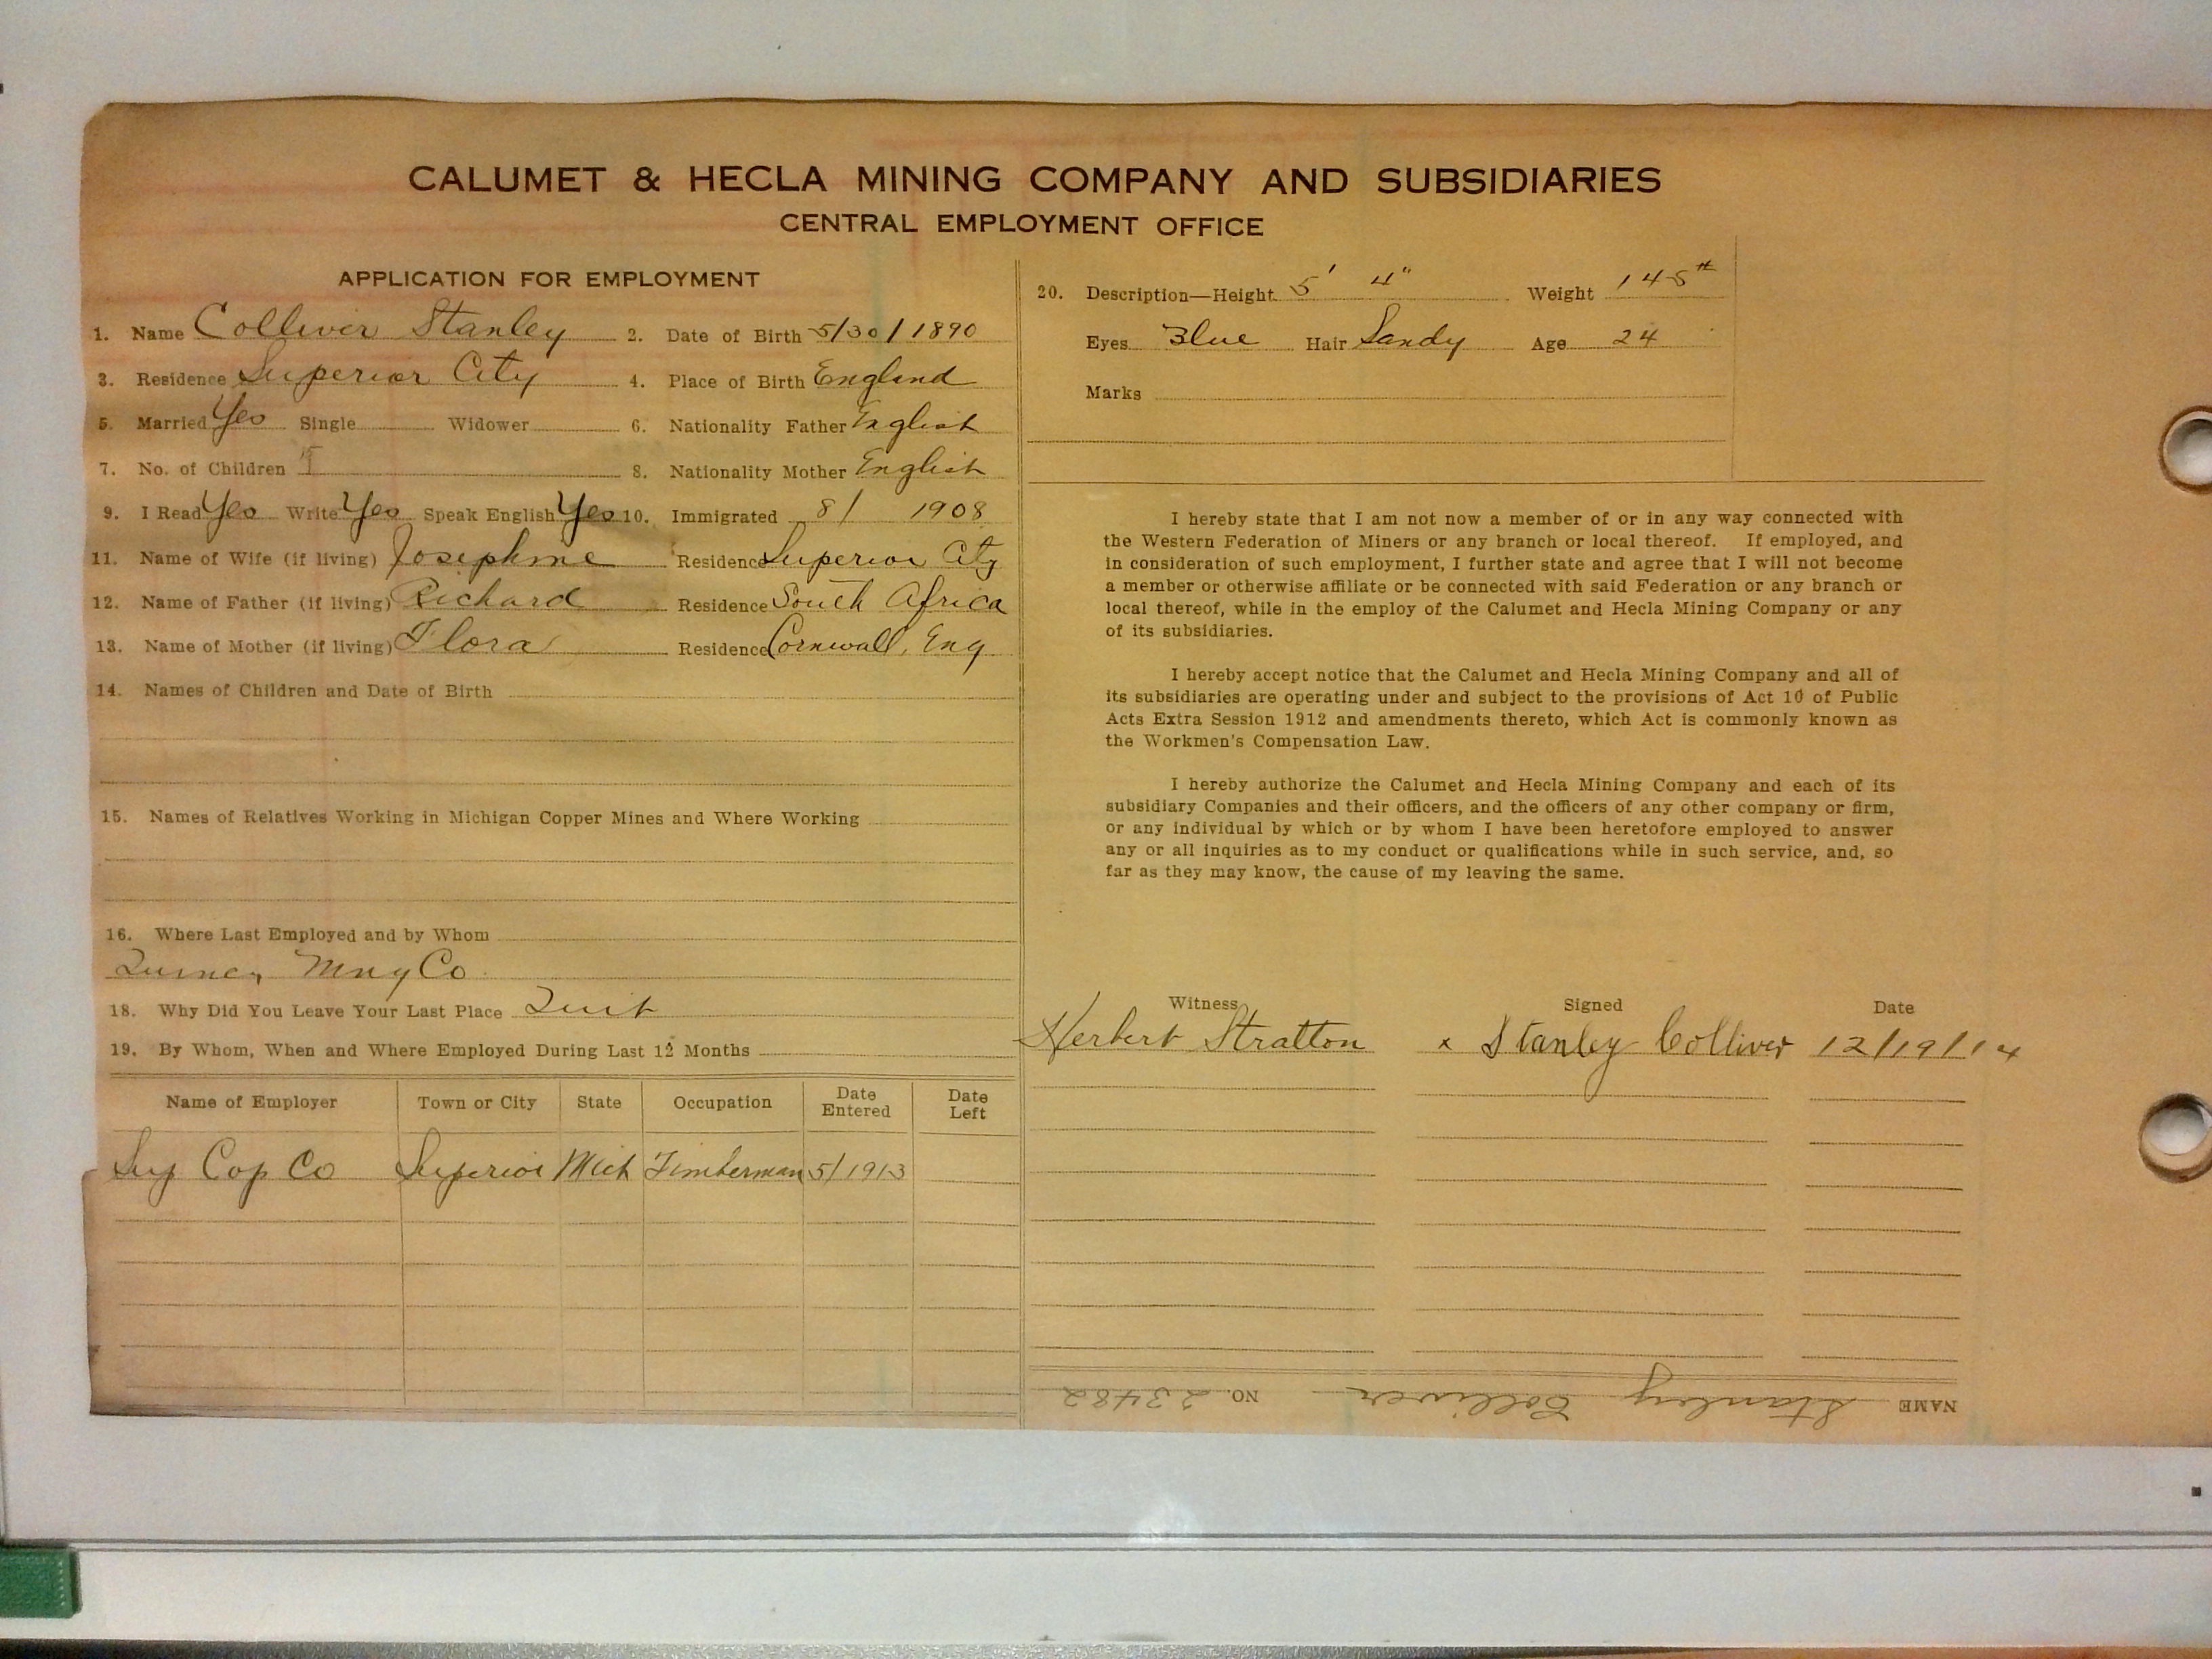 CALUMET & HECLA MINING COMPANY AND SUBSIDIARIES
CENTRAL EMPLOYMENT OFFICE
APPLICATION FOR EMPLOYMENT
1. Name Colliver Stanley 2. Date of Birth 5/30/1890
3. Residence Superior City 4. Place of Birth England
5. Married Yes Single Widower 6. Nationality Father English
7. No. of Children 8. Nationality Mother English
9. I Read Yes Write Yes Speak English Yes 10. Immigrated 8/ 1908
11. Name of Wife (if living) Josephine Residence Superior City
12. Name of Father (if living) Richard Residence South Africa
13. Name of Mother (if living) Flora Residence Cornwall, Eng
14. Names of Children and Date of Birth
15. Names of Relatives Working in Michigan Copper Mines and Where Working
16. Where Last Employed and by Whom
Quincy Mng Co
18. Why Did You Leave Your Last Place Quit
19. By Whom, When and Where Employed During Last 12 Months
Name of Employer Town or City State Occupation Date Entered Date Left
Sup Cop Co Superior Mich Timberman 5/1913
20. Description—Height 5' 4" Weight 145#
Eyes Blue Hair Sandy Age 24
Marks
I hereby state that I am not now a member of or in any way connected with
the Western Federation of Miners or any branch or local thereof. If employed, and
in consideration of such employment, I further state and agree that I will not become
a member or otherwise affiliate or be connected with said Federation or any branch or
local thereof, while in the employ of the Calumet and Hecla Mining Company or any
of its subsidiaries.
I hereby accept notice that the Calumet and Hecla Mining Company and all of
its subsidiaries are operating under and subject to the provisions of Act 10 of Public
Acts Extra Session 1912 and amendments thereto, which Act is commonly known as
the Workmen's Compensation Law.
I hereby authorize the Calumet and Hecla Mining Company and each of its
subsidiary Companies and their officers, and the officers of any other company or firm,
or any individual by which or by whom I have been heretofore employed to answer
any or all inquiries as to my conduct or qualifications while in such service, and, so
far as they may know, the cause of my leaving the same.
Witness Signed Date
Herbert Stratton x Stanley Colliver 12/19/14
NAME Stanley Colliver NO. 23482